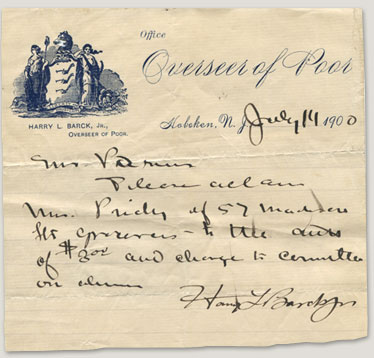 Office
Overseer of Poor
HARRY L. BARCK, JR.,
OVERSEER OF POOR.
Hoboken, N. J. July 14 1900
Mr
Please allow
Mrs. Pridy of 57 Madison
St groceries to the amt
of $3.00 and charge to committee
on alms
Harry L Barck Jr